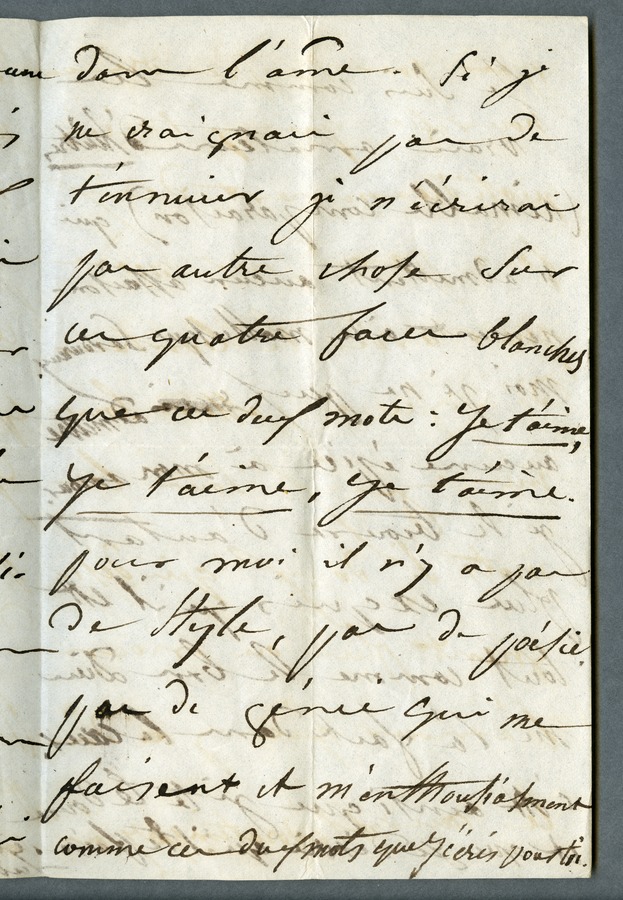 dans l'âme. Si je
ne craignais pas de
t'ennuier je n'écrirais
pas autre chose sur
ces quatre faces blanches
que ces deux mots : Je t'aime,
Je t'aime, Je t'aime.
pour moi il n'y a pas
de style, pas de poésie
pas de génie qui me
faisent et m'enthousiasment
comme ces deux mots que j'écris pour toi.